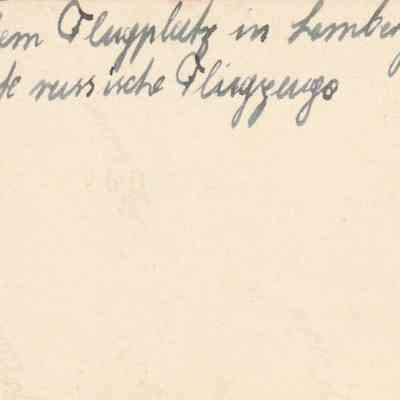 dem Flugplatz in Lemberg
te russische Flugzeuge